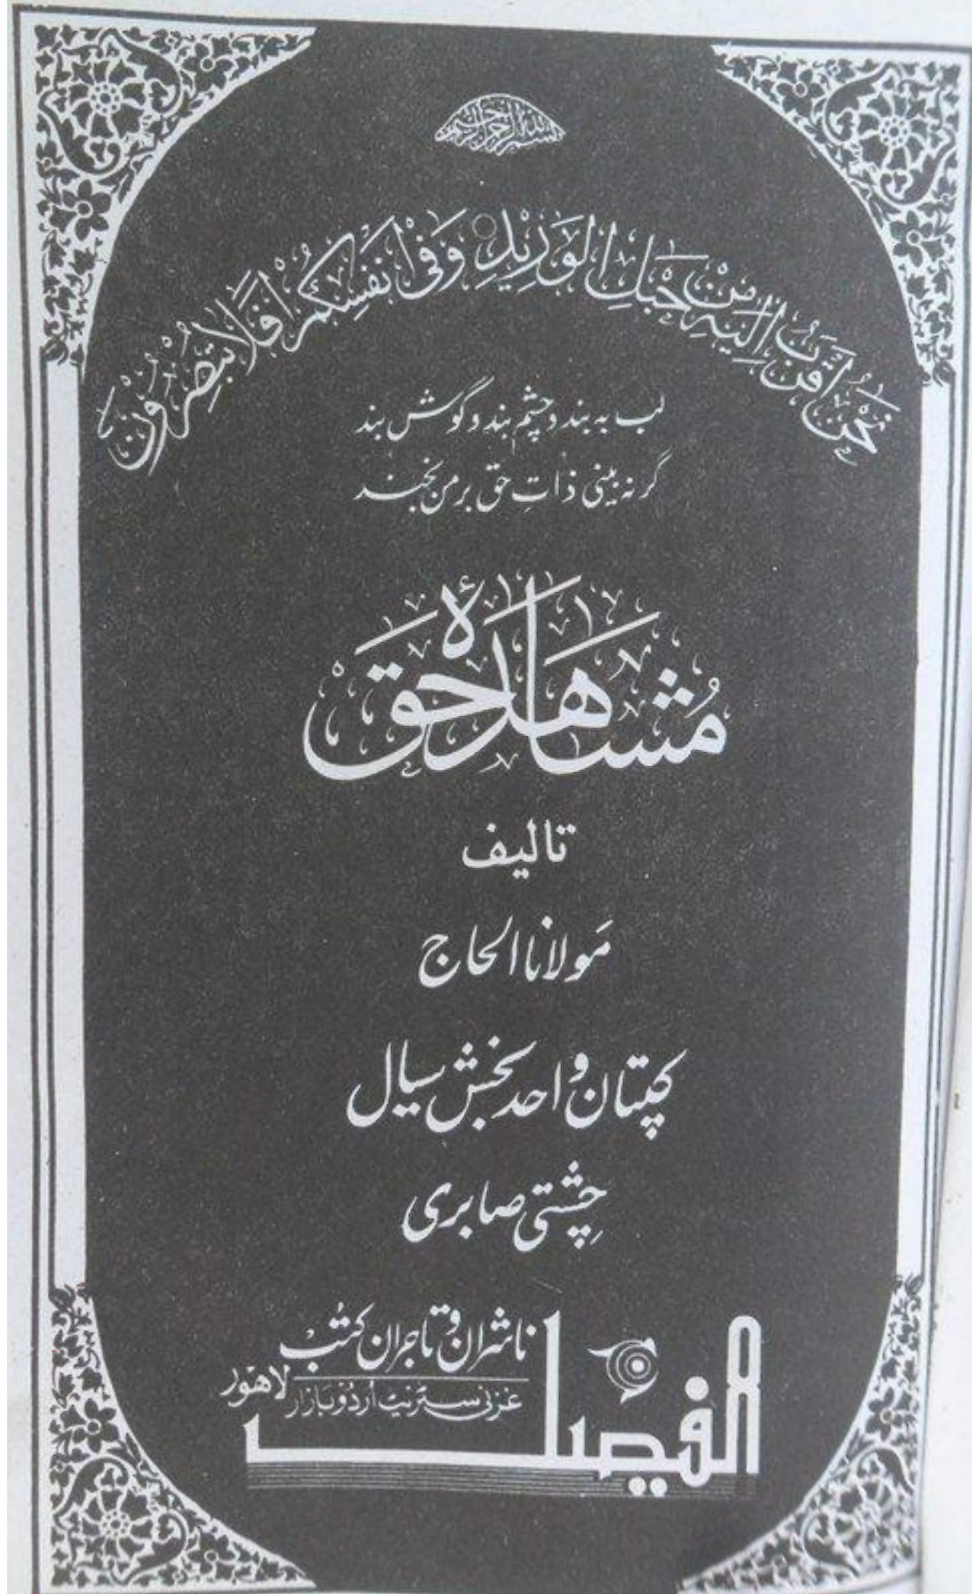 بسم الله الرحمن الرحيم
نَحْنُ اَقْرَبُ اِلَيْهِ مِنْ حَبْلِ الْوَرِيْدِ وَفِیْ اَنْفُسِكُمْ اَفَلَا تُبْصِرُوْنَ
لب به بند و چشم بند و گوش بند
گر نه بینی ذاتِ حق بر من بخند
مُشاهدۂ حق
تالیف
مَولانا الحاج
کپتان واحد بخش سیال
چِشتی صابری
ناشران و تاجران کتُب
غزنی سٹریٹ اُردو بازار لاہور
الفیصل